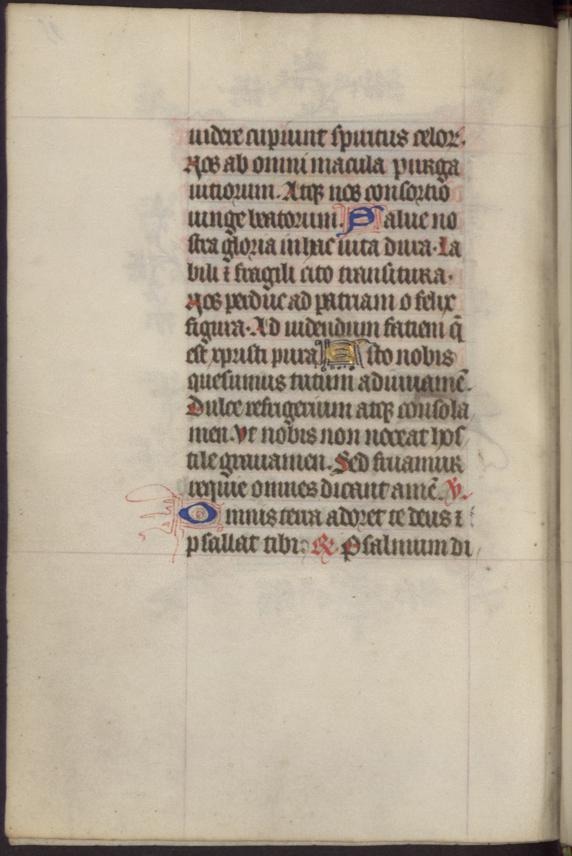 uidere cupiunt spiritus celor.
Nos ab omni macula purga
uitiorum. Atq; nos consortio
iunge beatorum. Salue no
stra gloria in hac uita dura. La
bili ⁊ fragili cito transitura.
Nos perduc ad patriam o felix
figura. Ad uidendum faciem q̄
est xpristi pura Esto nobis
quesumus tutum adiuuamē.
Dulce refrigerium atq; consola
men. Vt nobis non noceat hos
tile grauamen. Sed fruamur
requie omnes dicant amē. V.
Omnis terra adoret te deus ⁊
psallat tibi: R Psalmum di